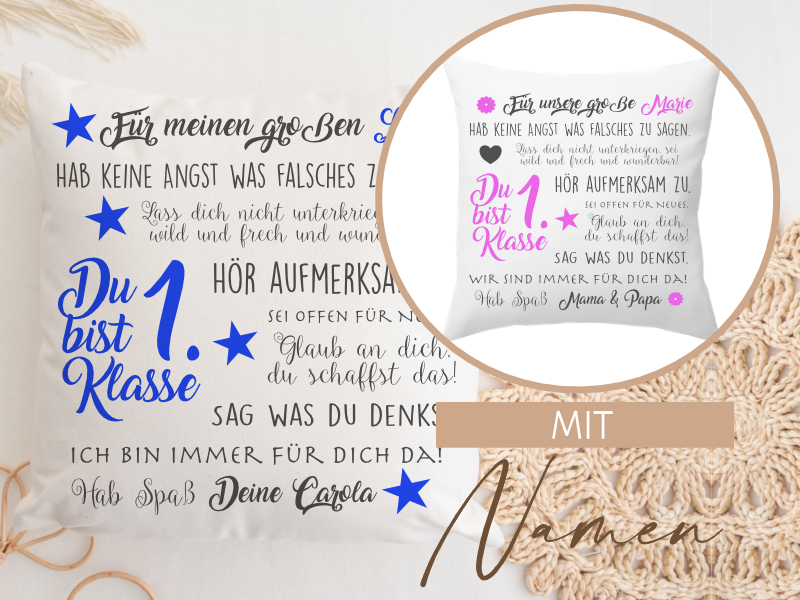 Für meinen großen
HAB KEINE ANGST WAS FALSCHES Z
Lass dich nicht unterkriegen
wild und frech und wun
Du bist 1. Klasse
HÖR AUFMERKSAM
SEI OFFEN FÜR N
Glaub an dich,
du schaffst das!
SAG WAS DU DENKS
ICH BIN IMMER FÜR DICH DA!
Hab Spaß Deine Carola
Für unsere große Marie
HAB KEINE ANGST WAS FALSCHES ZU SAGEN.
Lass dich nicht unterkriegen, sei
wild und frech und wunderbar!
Du bist 1. Klasse
HÖR AUFMERKSAM ZU.
SEI OFFEN FÜR NEUES.
Glaub an dich,
du schaffst das!
SAG WAS DU DENKST.
WIR SIND IMMER FÜR DICH DA!
Hab Spaß Mama & Papa
MIT
Namen